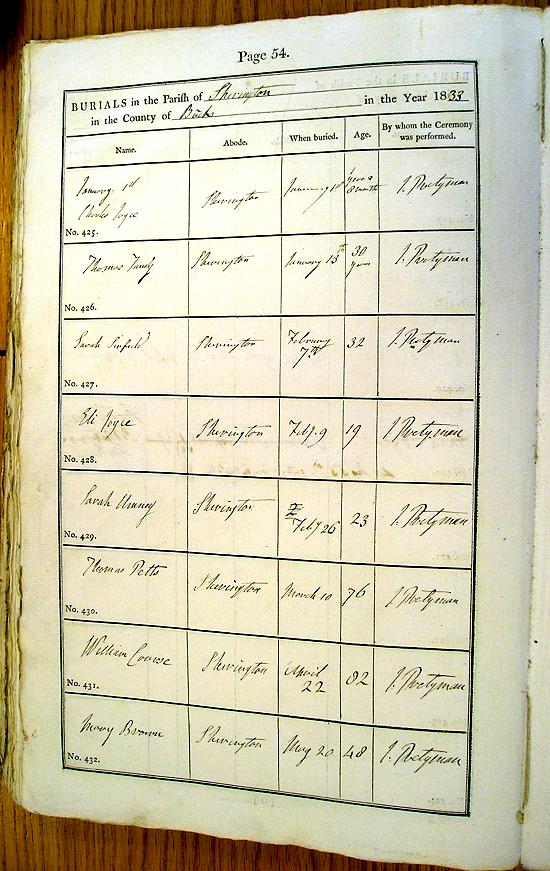 Page 54.
BURIALS in the Parish of Sherington in the Year 1833
in the County of Bucks
Name. Abode. When buried. Age. By whom the Ceremony was performed.
January 1st
Charles Joyce Sherington January 1st years 8 months J. Pretyman
No. 425.
Thomas Tandy Sherington January 15th 30 years J. Pretyman
No. 426.
Sarah Sherington February 7th 32 J. Pretyman
No. 427.
Eli Joyce Sherington Feby. 9 19 J. Pretyman
No. 428.
Sarah Umney Sherington Feby 26 23 J. Pretyman
No. 429.
Thomas Petts Sherington March 10 76 J. Pretyman
No. 430.
William Course Sherington April 22 82 J. Pretyman
No. 431.
Mary Brown Sherington May 20 48 J. Pretyman
No. 432.